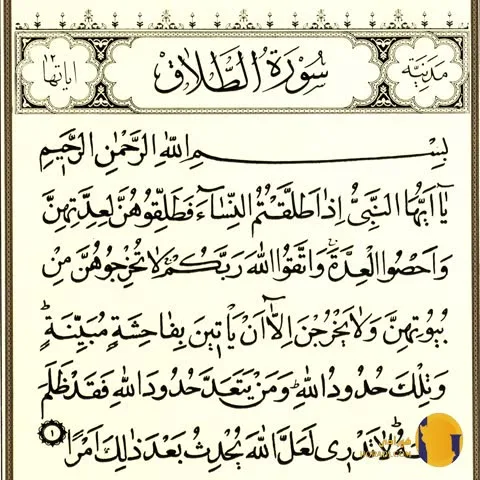 مَدَنِيَّة سُورَةُ الطَّلَاقِ اٰيَاتُهَا ١٢
بِسْمِ اللّٰهِ الرَّحْمٰنِ الرَّحٖيمِ
يَٓا اَيُّهَا النَّبِيُّ اِذَا طَلَّقْتُمُ النِّسَٓاءَ فَطَلِّقُوهُنَّ لِعِدَّتِهِنَّ
وَاَحْصُوا الْعِدَّةَۚ وَاتَّقُوا اللّٰهَ رَبَّكُمْۚ لَا تُخْرِجُوهُنَّ مِنْ
بُيُوتِهِنَّ وَلَا يَخْرُجْنَ اِلَّٓا اَنْ يَأْتٖينَ بِفَاحِشَةٍ مُبَيِّنَةٍؕ
وَتِلْكَ حُدُودُ اللّٰهِؕ وَمَنْ يَتَعَدَّ حُدُودَ اللّٰهِ فَقَدْ ظَلَمَ
لَا تَدْرٖي لَعَلَّ اللّٰهَ يُحْدِثُ بَعْدَ ذٰلِكَ اَمْرًا ١